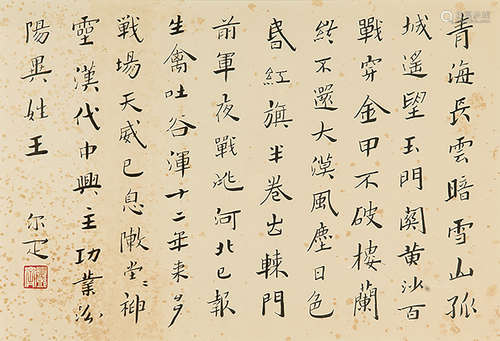 青海長雲暗雪山孤
城遙望玉門關黃沙百
戰穿金甲不破樓蘭
終不還大漠風塵日色
昏紅旗半卷出轅門
前軍夜戰洮河北已報
生禽吐谷渾十二年來多
戰場天威已息陣堂〻神
靈漢代中興主功業汾
陽異姓王
尔疋